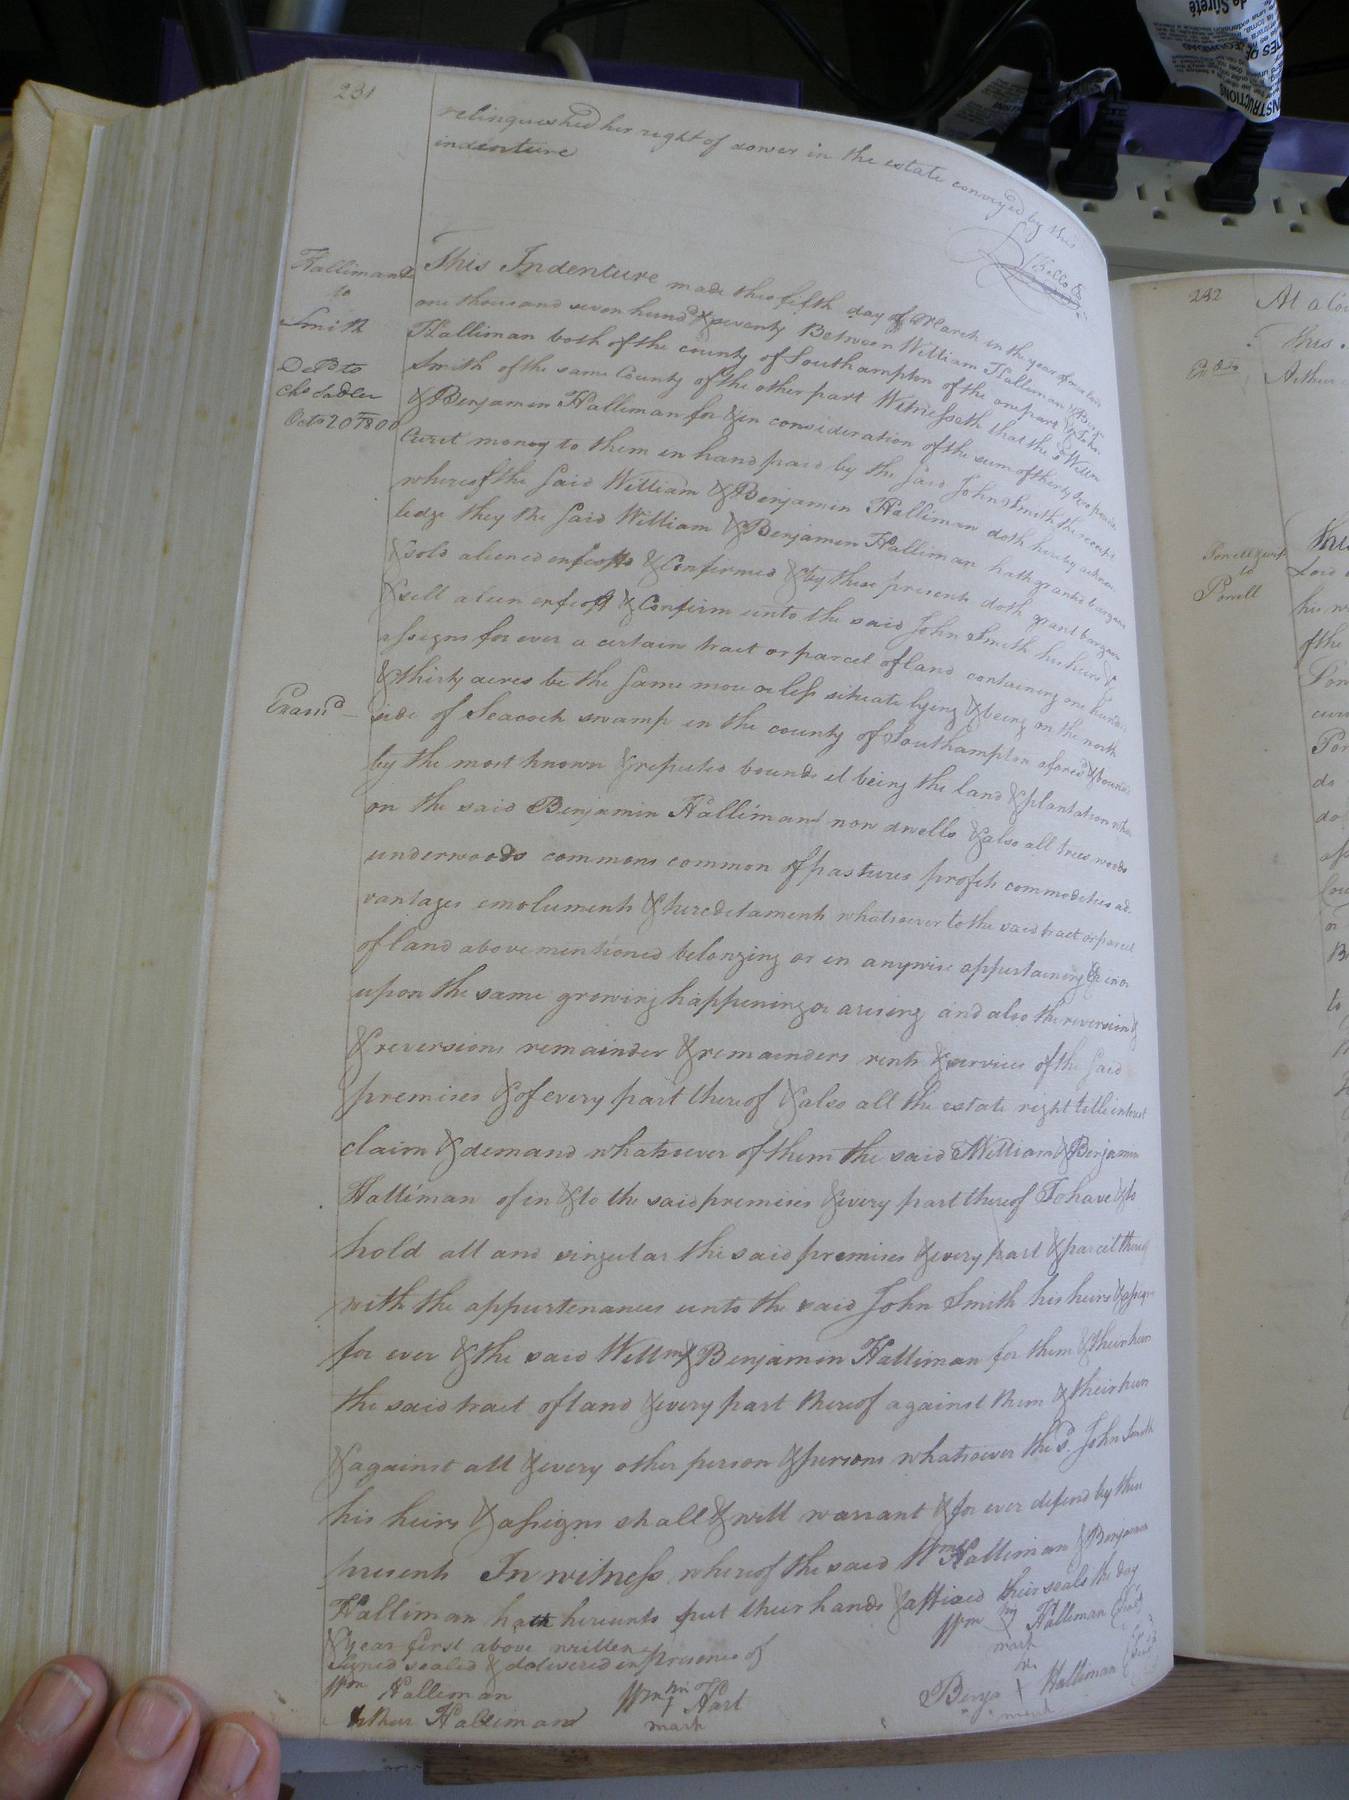 231
relinquished her right of dower in the estate conveyed by this
indenture
Hallimand
to
Smith
Deld to
Chs Sadler
Octr 20th 1800
Examd
This Indenture made this fifth day of March in the year of our Lord
one thousand seven hund & seventy Between William Halliman &
Halliman both of the county of Southampton of the one part & John
Smith of the same County of the other part Witnesseth that the sd Willm
& Benjamin Halliman for & in consideration of the sum of thirty two pounds
Curet money to them in hand paid by the said John Smith the receipt
whereof the said William & Benjamin Halliman doth hereby acknow
ledge they the said William & Benjamin Halliman hath granted bargain
& sold aliened enfeoffd & Confirmed & by these presents doth grant bargain
& sell alien enfeoff & Confirm unto the said John Smith his heirs &
assigns for ever a certain tract or parcel of land containing one hundred
& thirty acres be the same more or less situate lying & being on the north
side of Seacock swamp in the county of Southampton aforesd & bounded
by the most known & reputed bounds it being the land & plantation where
on the said Benjamin Hallimand now dwells & also all trees woods
underwoods commons common of pastures profits commodities ad
vantages emoluments & heredetaments whatsoever to the said tract or parcel
of land above mentioned belonging or in anywise appertaining & in or
upon the same growing happening or arising and also the reversion &
& reversions remainder & remainders rents & services of the said
premises & of every part thereof & also all the estate right title interest
claim & demand whatsoever of them the said William & Benjamin
Halliman of in & to the said premises & every part thereof To have & to
hold all and singular the said premises & every part & parcel thereof
with the appurtenances unto the said John Smith his heirs & assigns
for ever & the said Willm & Benjamin Halliman for them & their heirs
the said tract of land & every part thereof against them & their heirs
& against all & every other person & persons whatsoever the sd. John Smith
his heirs & assigns shall & will warrant & for ever defend by these
presents In witness whereof the said Wm Halliman & Benjamin
Halliman hath hereunto put their hands & affixed their seals the day
& year first above written
Signed sealed & delivered in presence of
Wm his Halliman (seal)
mark
Wm Halliman
Wm his + Hart
mark
Benja + Halliman
mark
Arthur Hallimand
232
At a Co
this
Arthur
Powell
to
Powell
Lord
his
of the
do
do
to
INSTRUCTIONS
de Sûreté